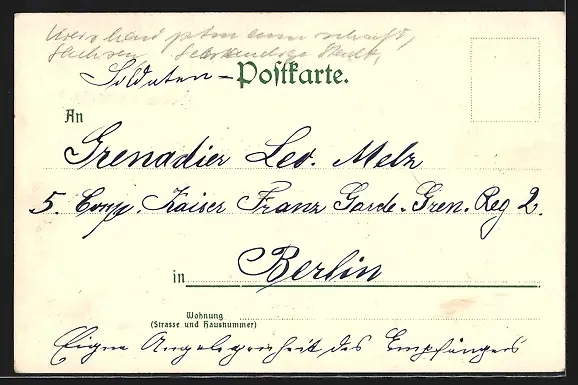 Soldaten - Postkarte.
An
Grenadier Leo. Melz
5. Comp. Kaiser Franz Garde. Gren. Reg 2.
in Berlin
Wohnung
(Strasse und Hausnummer)
Eigne Angelegenheit des Empfängers